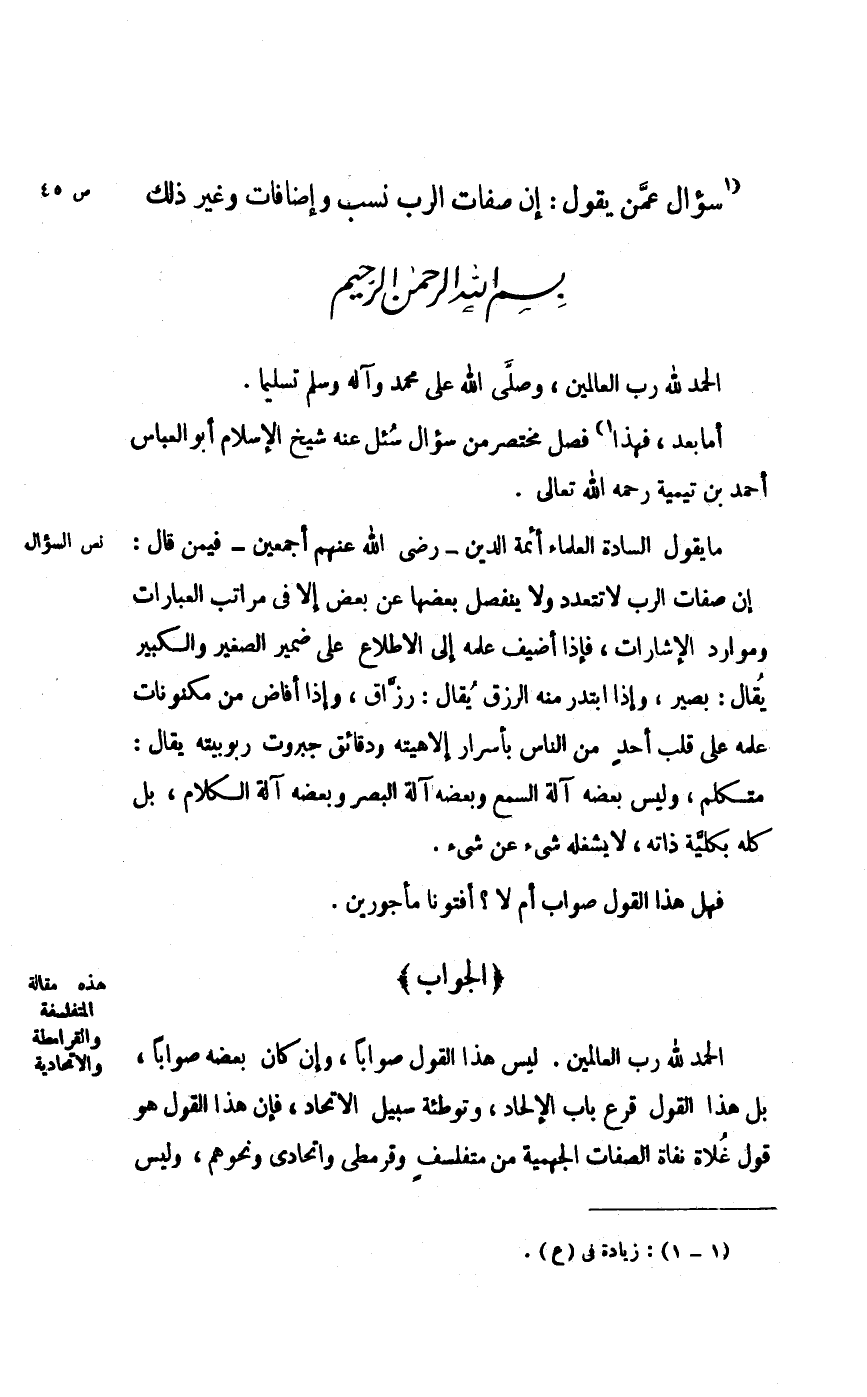 (١ سؤال عمَّن يقول : إن صفات الرب نسب وإضافات وغير ذلك
ص ٤٥
بسم الله الرحمن الرحيم
الحمد لله رب العالمين ، وصلَّى الله على محمد وآله وسلم تسليما .
أما بعد ، فهذا ١) فصل مختصر من سؤال سُئل عنه شيخ الإسلام أبو العباس
أحمد بن تيمية رحمه الله تعالى .
مايقول السادة العلماء أئمة الدين ــ رضى الله عنهم أجمعين ــ فيمن قال :
نص السؤال
إن صفات الرب لاتتعدد ولا ينفصل بعضها عن بعض إلا فى مراتب العبارات
وموارد الإشارات ، فإذا أضيف علمه إلى الاطلاع على ضمير الصغير والكبير
يُقال : بصير ، وإذا ابتدر منه الرزق يُقال : رزَّاق ، وإذا أفاض من مكنونات
علمه على قلب أحدٍ من الناس بأسرار إلاهيته ودقائق جبروت ربوبيته يقال :
متكلم ، وليس بعضه آلة السمع وبعضه آلة البصر وبعضه آلة الكلام ، بل
كله بكليَّة ذاته ، لايشغله شىء عن شىء .
فهل هذا القول صواب أم لا ؟ أفتونا مأجورين .
﴿الجواب﴾
هذه مقالة
المتفلسفة
والقرامطة
والاتحادية
الحمد لله رب العالمين . ليس هذا القول صواباً ، وإن كان بعضه صواباً ،
بل هذا القول قرع باب الإلحاد ، وتوطئة سبيل الاتحاد ، فإن هذا القول هو
قول غُلاة نفاة الصفات الجهمية من متفلسفٍ وقرمطى واتحادى ونحوهم ، وليس
(١ ــ ١) : زيادة فى (ع) .